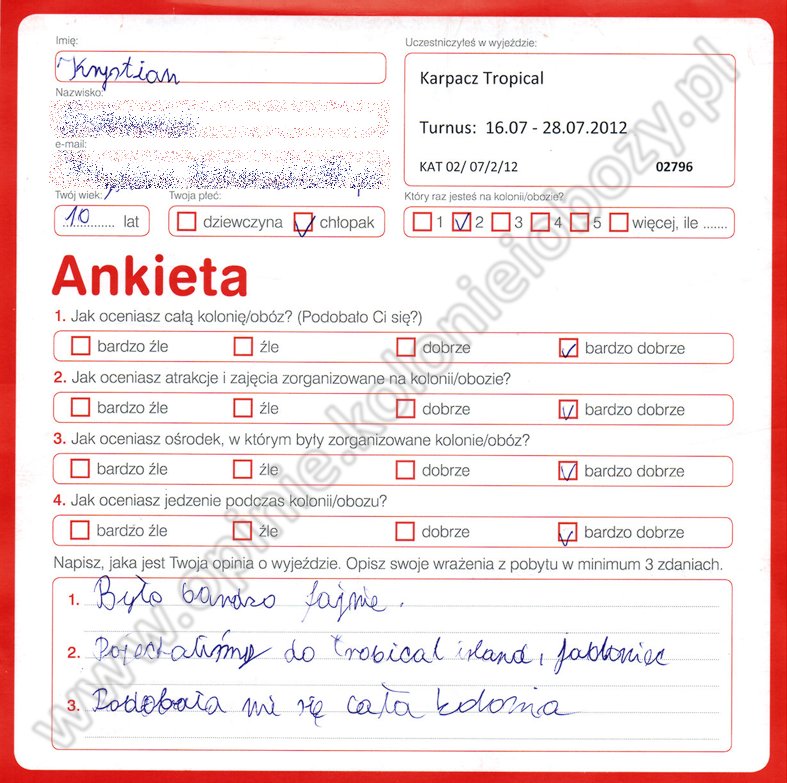 Imię:
Uczestniczyłeś w wyjeździe:
Krystian
Karpacz Tropical
Nazwisko:
Turnus: 16.07 - 28.07.2012
e-mail:
KAT 02/ 07/2/12 02796
Twój wiek: Twoja płeć: Który raz jesteś na kolonii/obozie?
10 lat dziewczyna chłopak 1 2 3 4 5 więcej, ile .......
Ankieta
1. Jak oceniasz całą kolonię/obóz? (Podobało Ci się?)
bardzo źle źle dobrze bardzo dobrze
2. Jak oceniasz atrakcje i zajęcia zorganizowane na kolonii/obozie?
bardzo źle źle dobrze bardzo dobrze
3. Jak oceniasz ośrodek, w którym były zorganizowane kolonie/obóz?
bardzo źle źle dobrze bardzo dobrze
4. Jak oceniasz jedzenie podczas kolonii/obozu?
bardzo źle źle dobrze bardzo dobrze
Napisz, jaka jest Twoja opinia o wyjeździe. Opisz swoje wrażenia z pobytu w minimum 3 zdaniach.
1. Było bardzo fajnie.
2. Pojechaliśmy do tropical island, Jabloniec
3. Podobała mi się cała kolonia
www.opinie.kolonieiobozy.pl